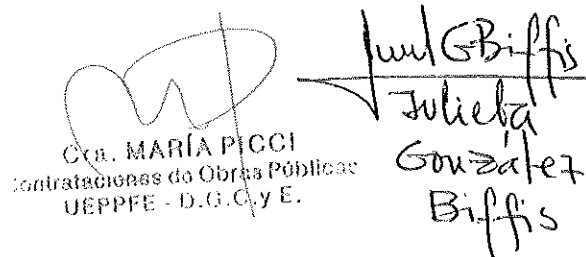 Cra. MARÍA PICCI
Contrataciones de Obras Públicas
UEPPFE - D.G.C.y E.
GBiffis
Julieta
González
Biffis